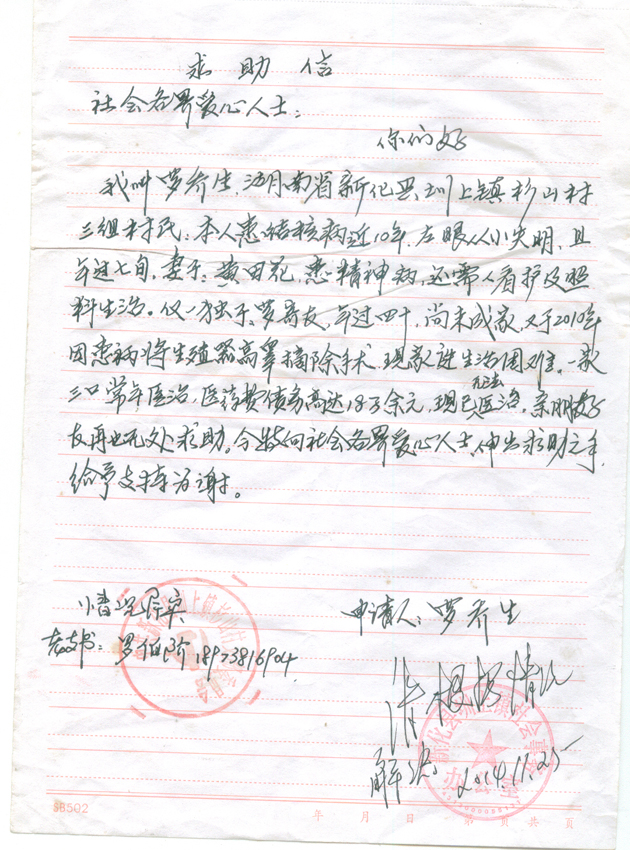 求助信
社会各界爱心人士：
你们好
我叫罗乔生，湖南省新化县圳上镇杉山村
三组村民，本人患结核病近10年，左眼从小失明，且
年过七旬，妻子：黄田花，患精神病，还需人看护及照
料生活。仅一独子，罗高友，年过四十，尚未成家，又于2010年
因患病将生殖器高睾摘除手术，现家庭生活困难，一家
三口常年医治，医药费债务高达18万余元，现已无法医治，亲朋好
友再也无处求助。今特向社会各界爱心人士，伸出求助之手，
给予支持为谢。
情况属实
老支书：罗伯阶 18973816904
申请人：罗乔生
请根据情况
解决
2014.11.25
SB502
年 月 日 第 页共 页